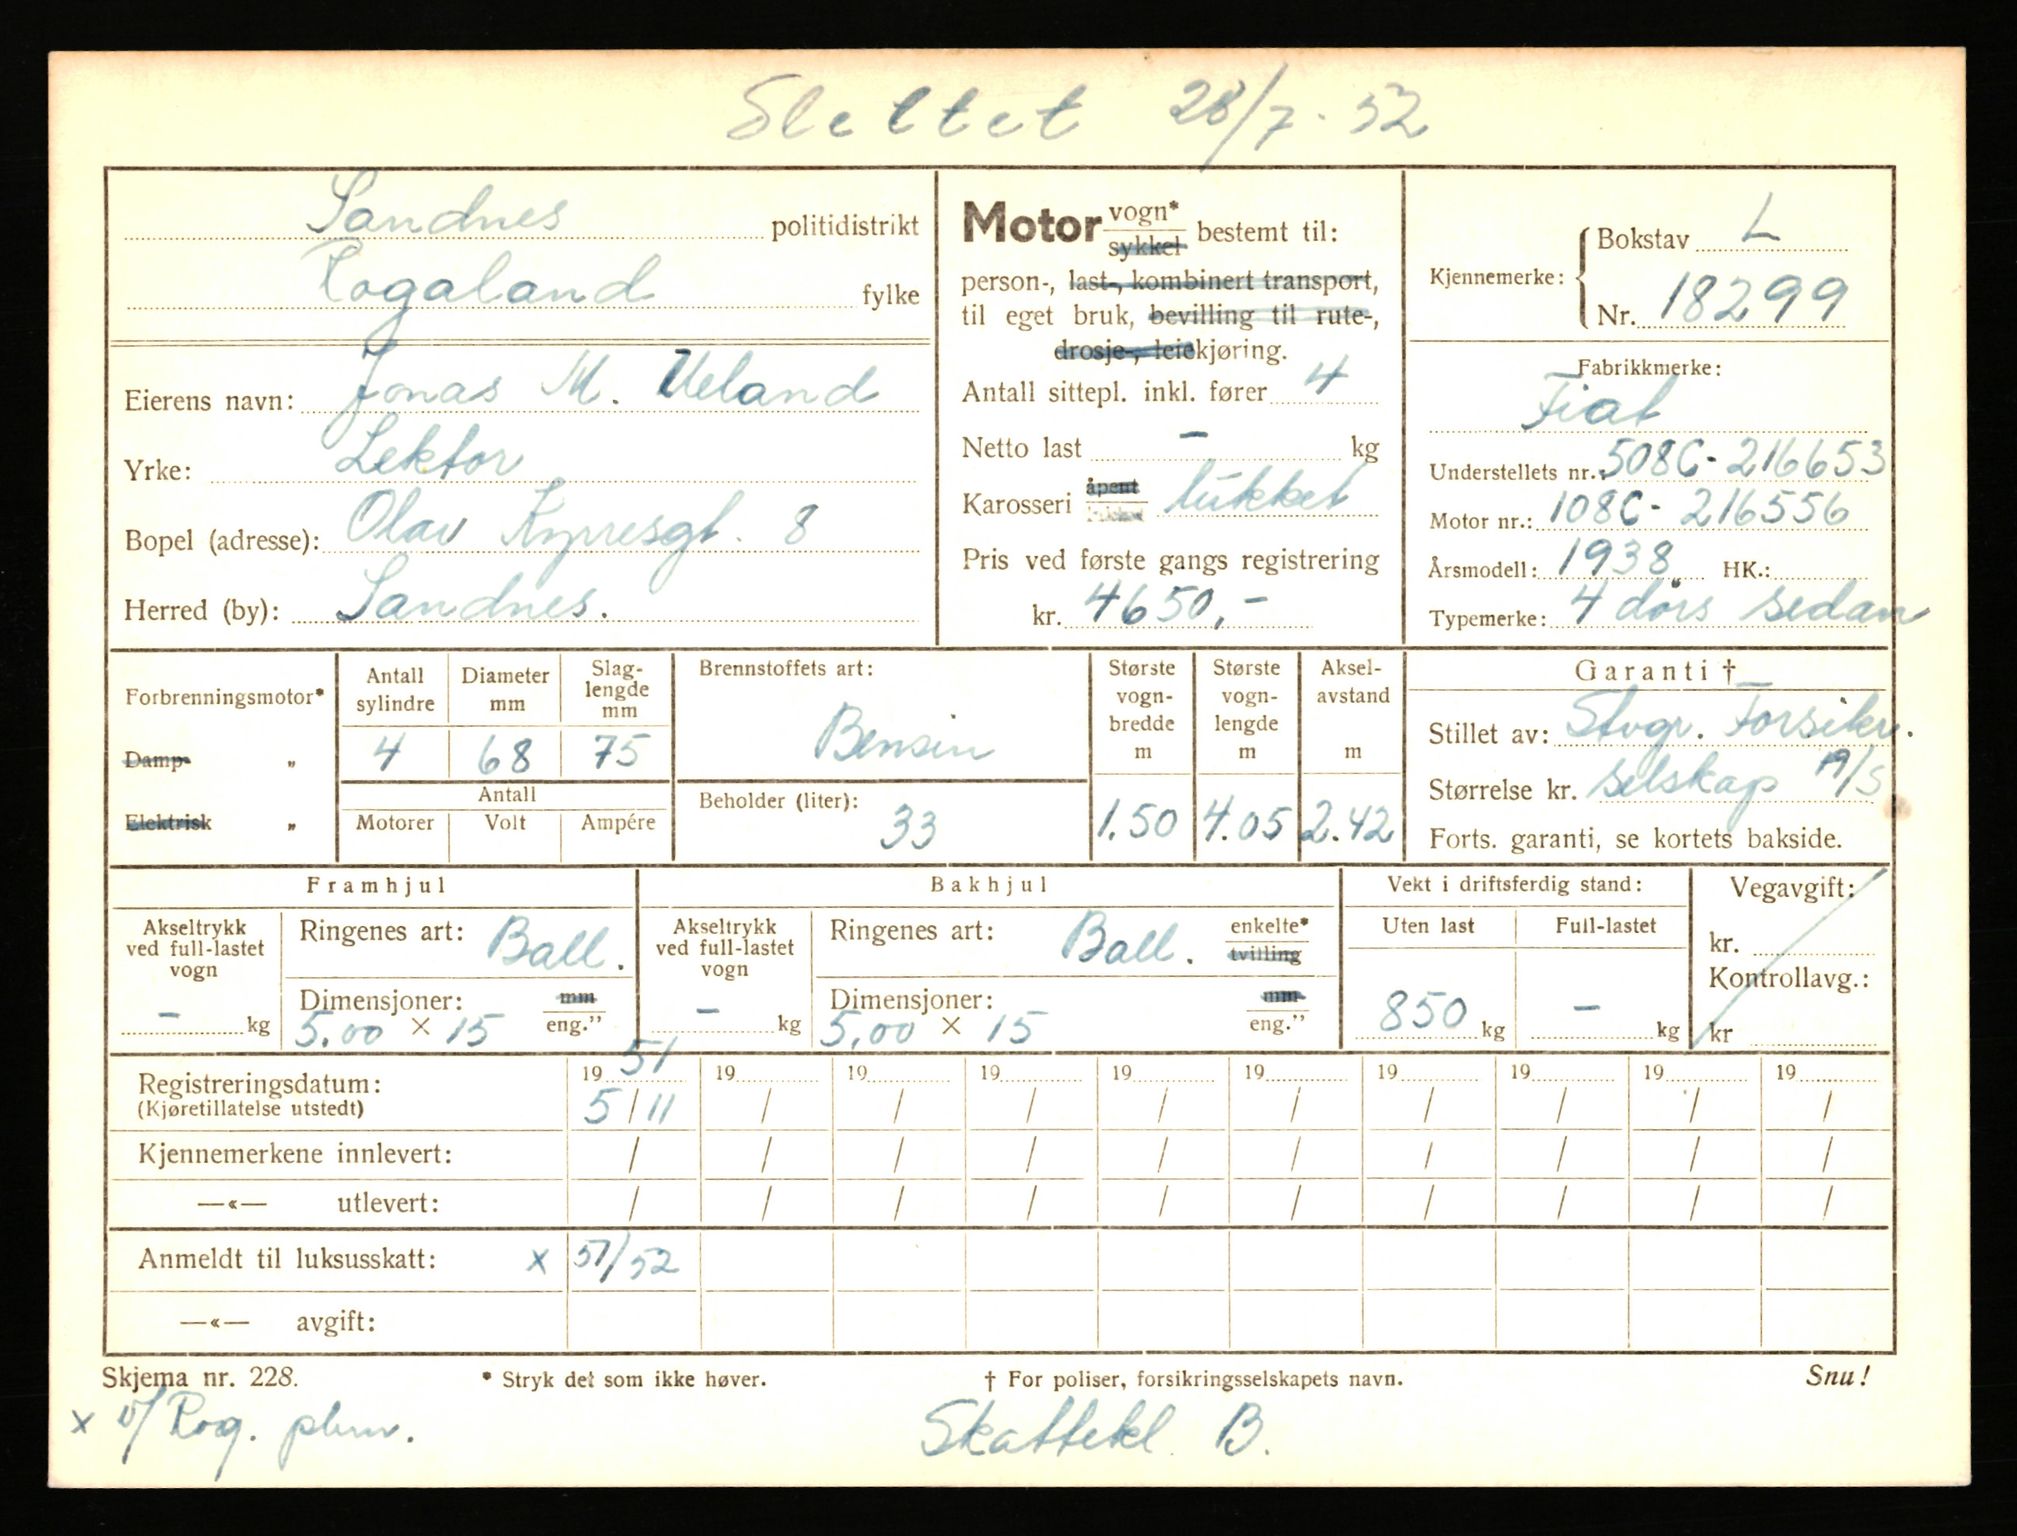 Slettet 28/7.52
Sandnes politidistrikt
Rogaland fylke
Eierens navn: Jonas M. Ueland
Yrke: Lektor
Bopel (adresse): Olav Kyrresgt. 8
Herred (by): Sandnes.
Motor vogn* sykkel bestemt til:
person-, last-, kombinert transport,
til eget bruk, bevilling til rute-,
drosje-, leiekjøring.
Antall sittepl. inkl. fører 4
Netto last – kg
Karosseri åpent lukket lukket
Pris ved første gangs registrering
kr. 4650,-
Kjennemerke: Bokstav L
Nr. 18299
Fabrikkmerke:
Fiat
Understellets nr.: 508C-216653
Motor nr.: 108C-216556
Årsmodell: 1938 HK.:
Typemerke: 4 dørs sedan
Forbrenningsmotor*
Damp- „
Elektrisk „
Antall sylindre Diameter mm Slag-lengde mm
4 68 75
Antall
Motorer Volt Ampére
Brennstoffets art:
Bensin
Beholder (liter):
33
Største vogn-bredde m Største vogn-lengde m Aksel-avstand m
1.50 4.05 2.42
Garanti †
Stillet av: Stvgr. Forsikr.
Størrelse kr. selskap A/S
Forts. garanti, se kortets bakside.
Framhjul
Akseltrykk ved full-lastet vogn
– kg
Ringenes art: Ball.
Dimensjoner: mm
5.00 × 15 eng."
Bakhjul
Akseltrykk ved full-lastet vogn
– kg
Ringenes art: Ball. enkelte* tvilling
Dimensjoner: mm
5,00 × 15 eng."
Vekt i driftsferdig stand:
Uten last Full-lastet
850 kg – kg
Vegavgift:
kr.
Kontrollavg.:
kr
Registreringsdatum: 19 51 19 19 19 19 19 19 19 19 19
(Kjøretillatelse utstedt) 5/11 / / / / / / / / /
Kjennemerkene innlevert: / / / / / / / / / /
—«— utlevert: / / / / / / / / / /
Anmeldt til luksusskatt: x 51/52
—«— avgift:
Skjema nr. 228. * Stryk det som ikke høver. † For poliser, forsikringsselskapets navn. Snu!
x v/ Rog. pkm.
Skattekl. B.